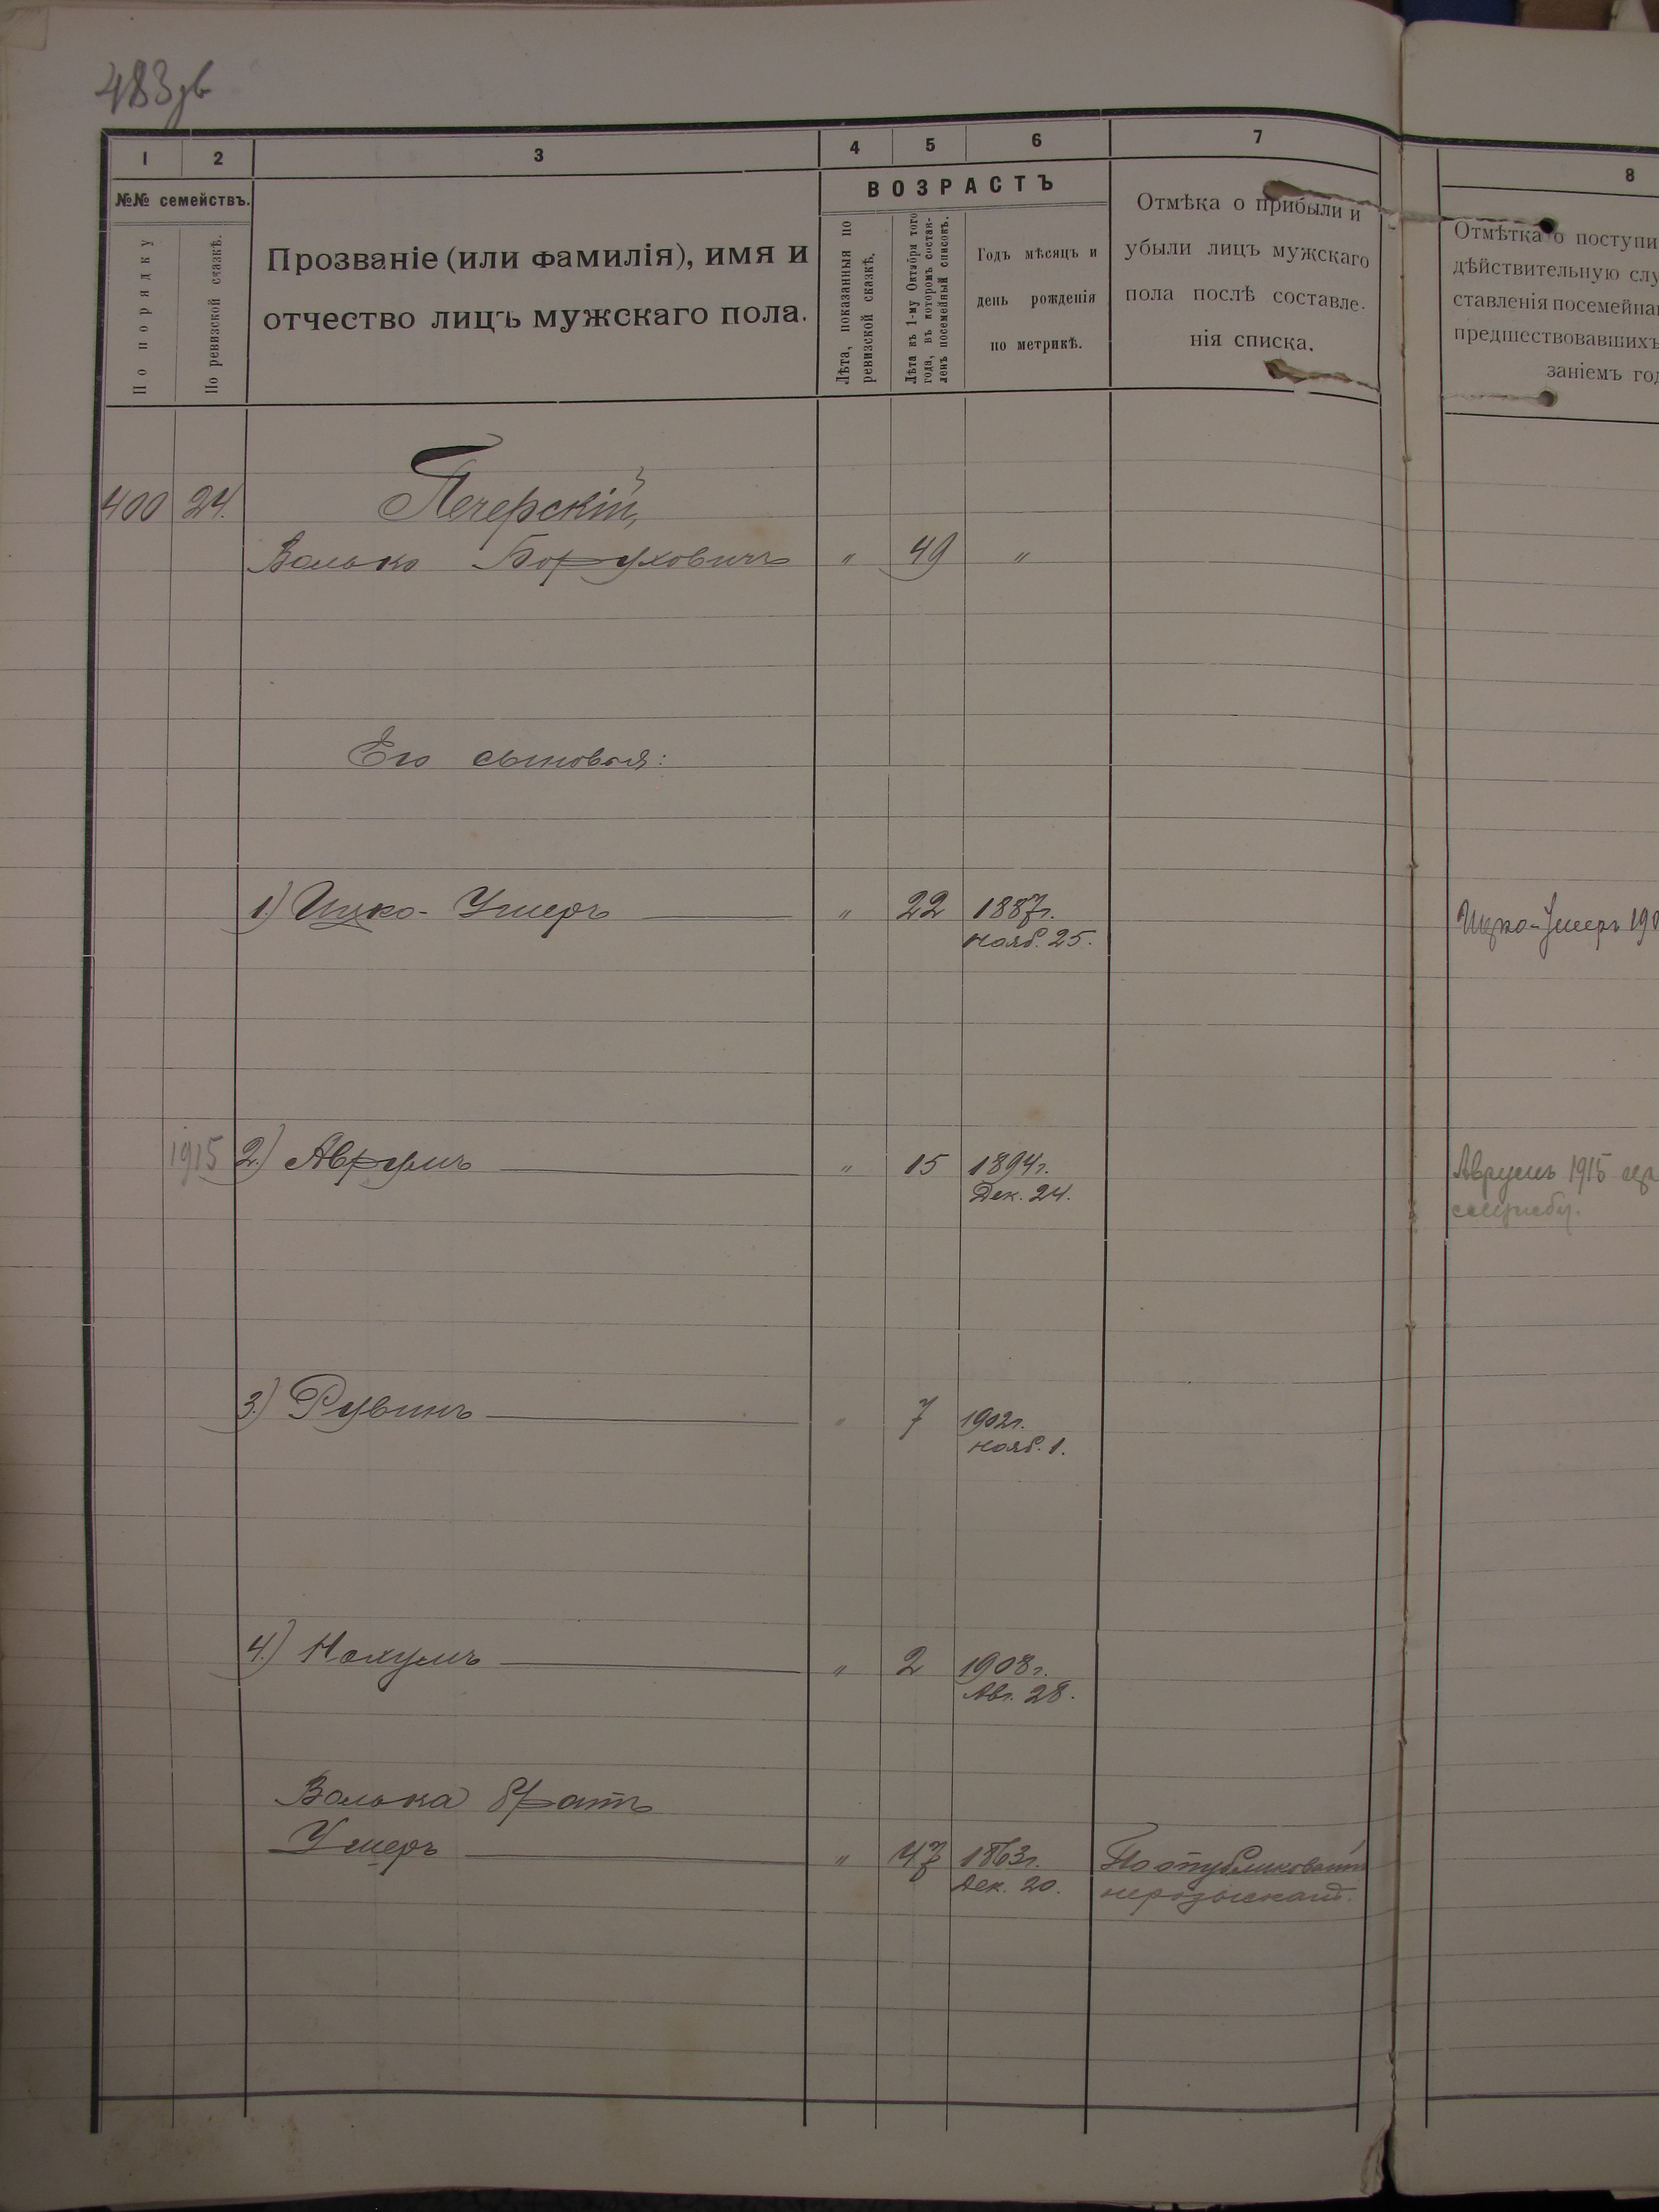 483зв
1 2 3 4 5 6 7
№№ семействъ.
По порядку
По ревизской сказкѣ.
Прозваніе (или фамилія), имя и
отчество лицъ мужскаго пола.
ВОЗРАСТЪ
Лѣта, показанныя по
ревизской сказкѣ.
Лѣта къ 1-му Октября того
года, въ которомъ состав-
ленъ посемейный списокъ.
Годъ мѣсяцъ и
день рожденія
по метрикѣ.
Отмѣка о прибыли и
убыли лицъ мужскаго
пола послѣ составле-
нія списка.
8
Отмѣтка о поступи
дѣйствительную слу
ставленія посемейна
предшествовавшихъ
заніемъ год
400 24. Печерскій,
Волько Боруховичъ „ 49 „
Его сыновья:
1.) Ицко-Умеръ „ 22 1887г.
Нояб. 25.
Ицко-Умеръ 190
1915 2.) Аврумъ „ 15 1894г.
Дек. 24.
Аврумъ 1915
службу.
3.) Рувинъ „ 7 1902г.
Нояб. 1.
4.) Нахумъ „ 2 1908г.
Авг. 28.
Волька братъ
Умеръ „ 47 1863г. По опубликованію
Дек. 20. неразысканъ.